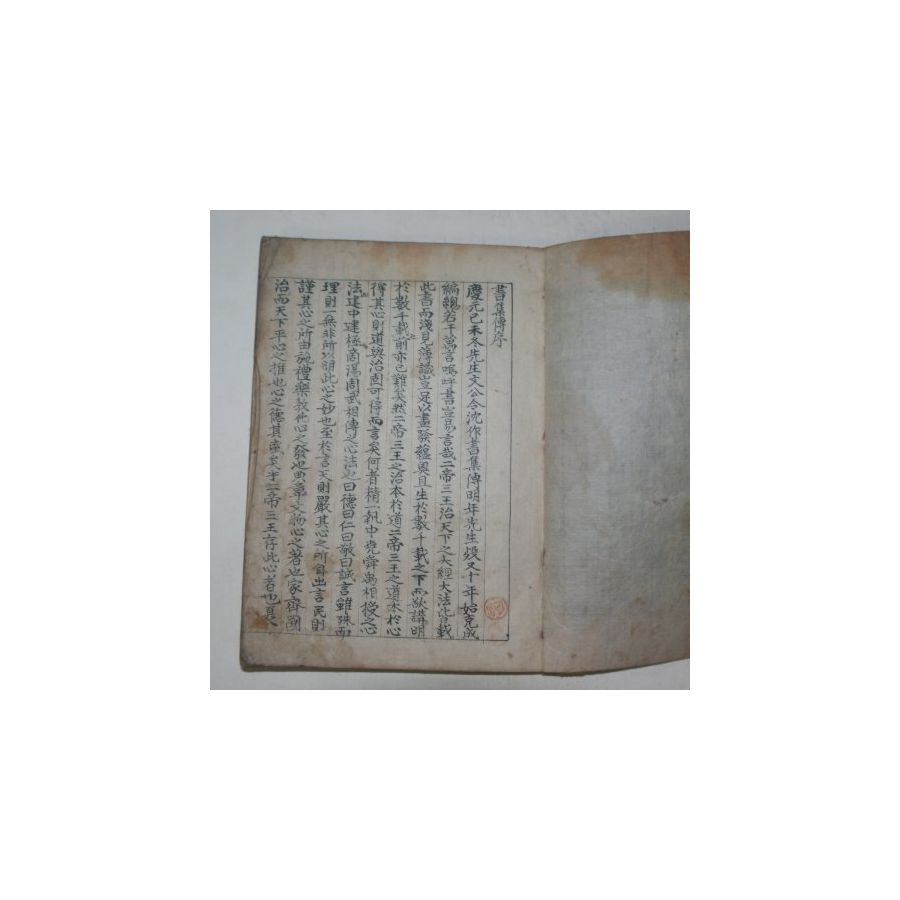 書集傳序
慶元己未冬先生文公令沈作書集傳明年先生歿又十年始克成
編總若干萬言嗚呼書豈易言哉二帝三王治天下之大經大法皆載
此書而淺見薄識豈足以盡發蘊奧且生於數千載之下而欲講明
於數千載前亦已難矣然二帝三王之治本於道二帝三王之道本於心
得其心則道與治固可得而言矣何者精一執中堯舜禹相授之心
法建中建極商湯周武相傳之心法也曰德曰仁曰敬曰誠言雖殊而
理則一無非所以明此心之妙也至於言天則嚴其心之所自出言民則
謹其心之所由施禮樂教化心之發也典章文物心之著也家齊国
治而天下平心之推也心之德其盛矣乎二帝三王存此心者也夏